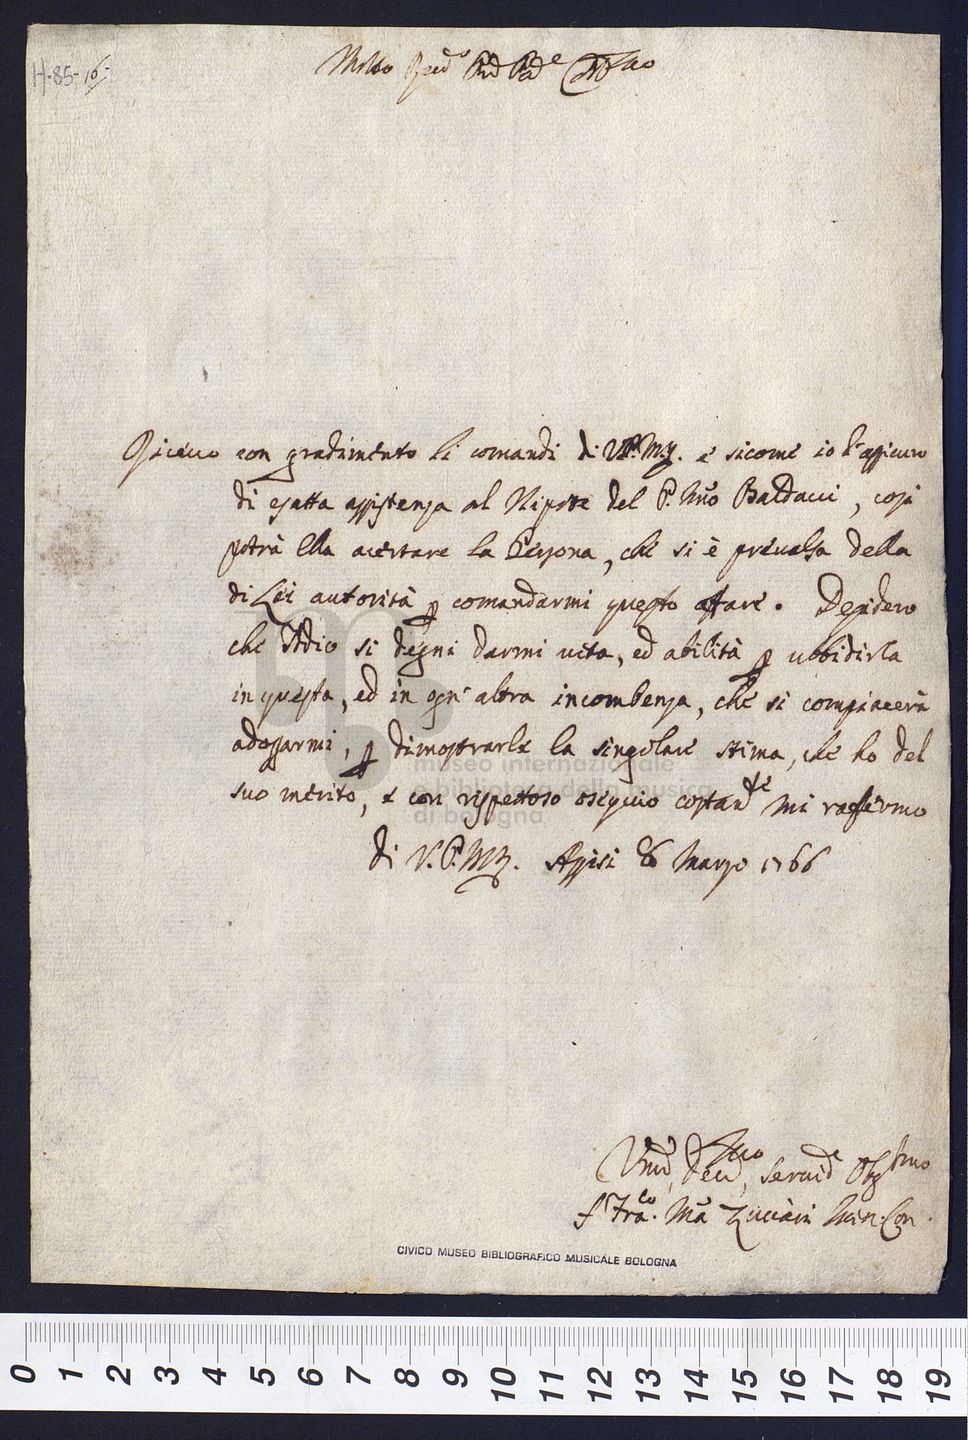 H-85-16
Molto Revdo Pad. Pad.e
Ricevo con gradimento li comandi di V.P.M.R. e sicome io l'assicuro
di esatta assistenza al Nipote del P. Mro Baldacci, così
potrà Ella accertare la Persona, che si è prevalsa della
di Lei autorità per comandarmi questo affare. Desidero
che Iddio si degni darmi vita, ed abilità per ubbidirla
in questa, ed in ogn'altra incombenza, che si compiacerà
adossarmi, per dimostrarle la singolare stima, che ho del
suo merito, e con rispettoso ossequio costante mi raffermo
di V.P.M.R. Assisi 26 Marzo 1766
museo internazionale
e biblioteca della musica
di bologna
Servid.e
F. Fra.co Ma Zuccari Min. Con.
CIVICO MUSEO BIBLIOGRAFICO MUSICALE BOLOGNA
0 1 2 3 4 5 6 7 8 9 10 11 12 13 14 15 16 17 18 19